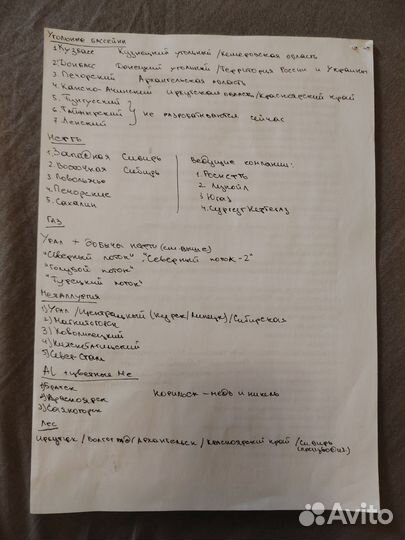 Угольные бассейны
1. Кузбасс Кузнецкий угольный / Кемеровская область
2. Донбасс Донецкий угольный / Территория России и Украины
3. Печорский Архангельская область
4. Канско-Ачинский Иркутская область / Красноярский край
5. Тунгусский
6. Таймырский } не разрабатываются сейчас
7. Ленский
Нефть
1. Западная Сибирь
2. Восточная Сибирь
3. Поволжье
4. Печорские
5. Сахалин
Ведущие компании:
1. Роснефть
2. Лукойл
3. Югаз
4. Сургутнефтегаз
Газ
Урал + добычи нефти (см. выше)
"Северный поток" "Северный поток-2"
"Голубой поток"
"Турецкий поток"
Металлургия
1) Урал / Центральный (Курск / Липецк) / Сибирская
2) Магнитогорск
3) Новолипецкий
4) Нижнетагильский
5) Север Сталь
AL + цветные Me
1) Братск
2) Красноярск
3) Саяногорск
Норильск - медь и никель
Лес
Иркутск / Волгоград / Архангельск / Красноярский край / Сибирь
Avito